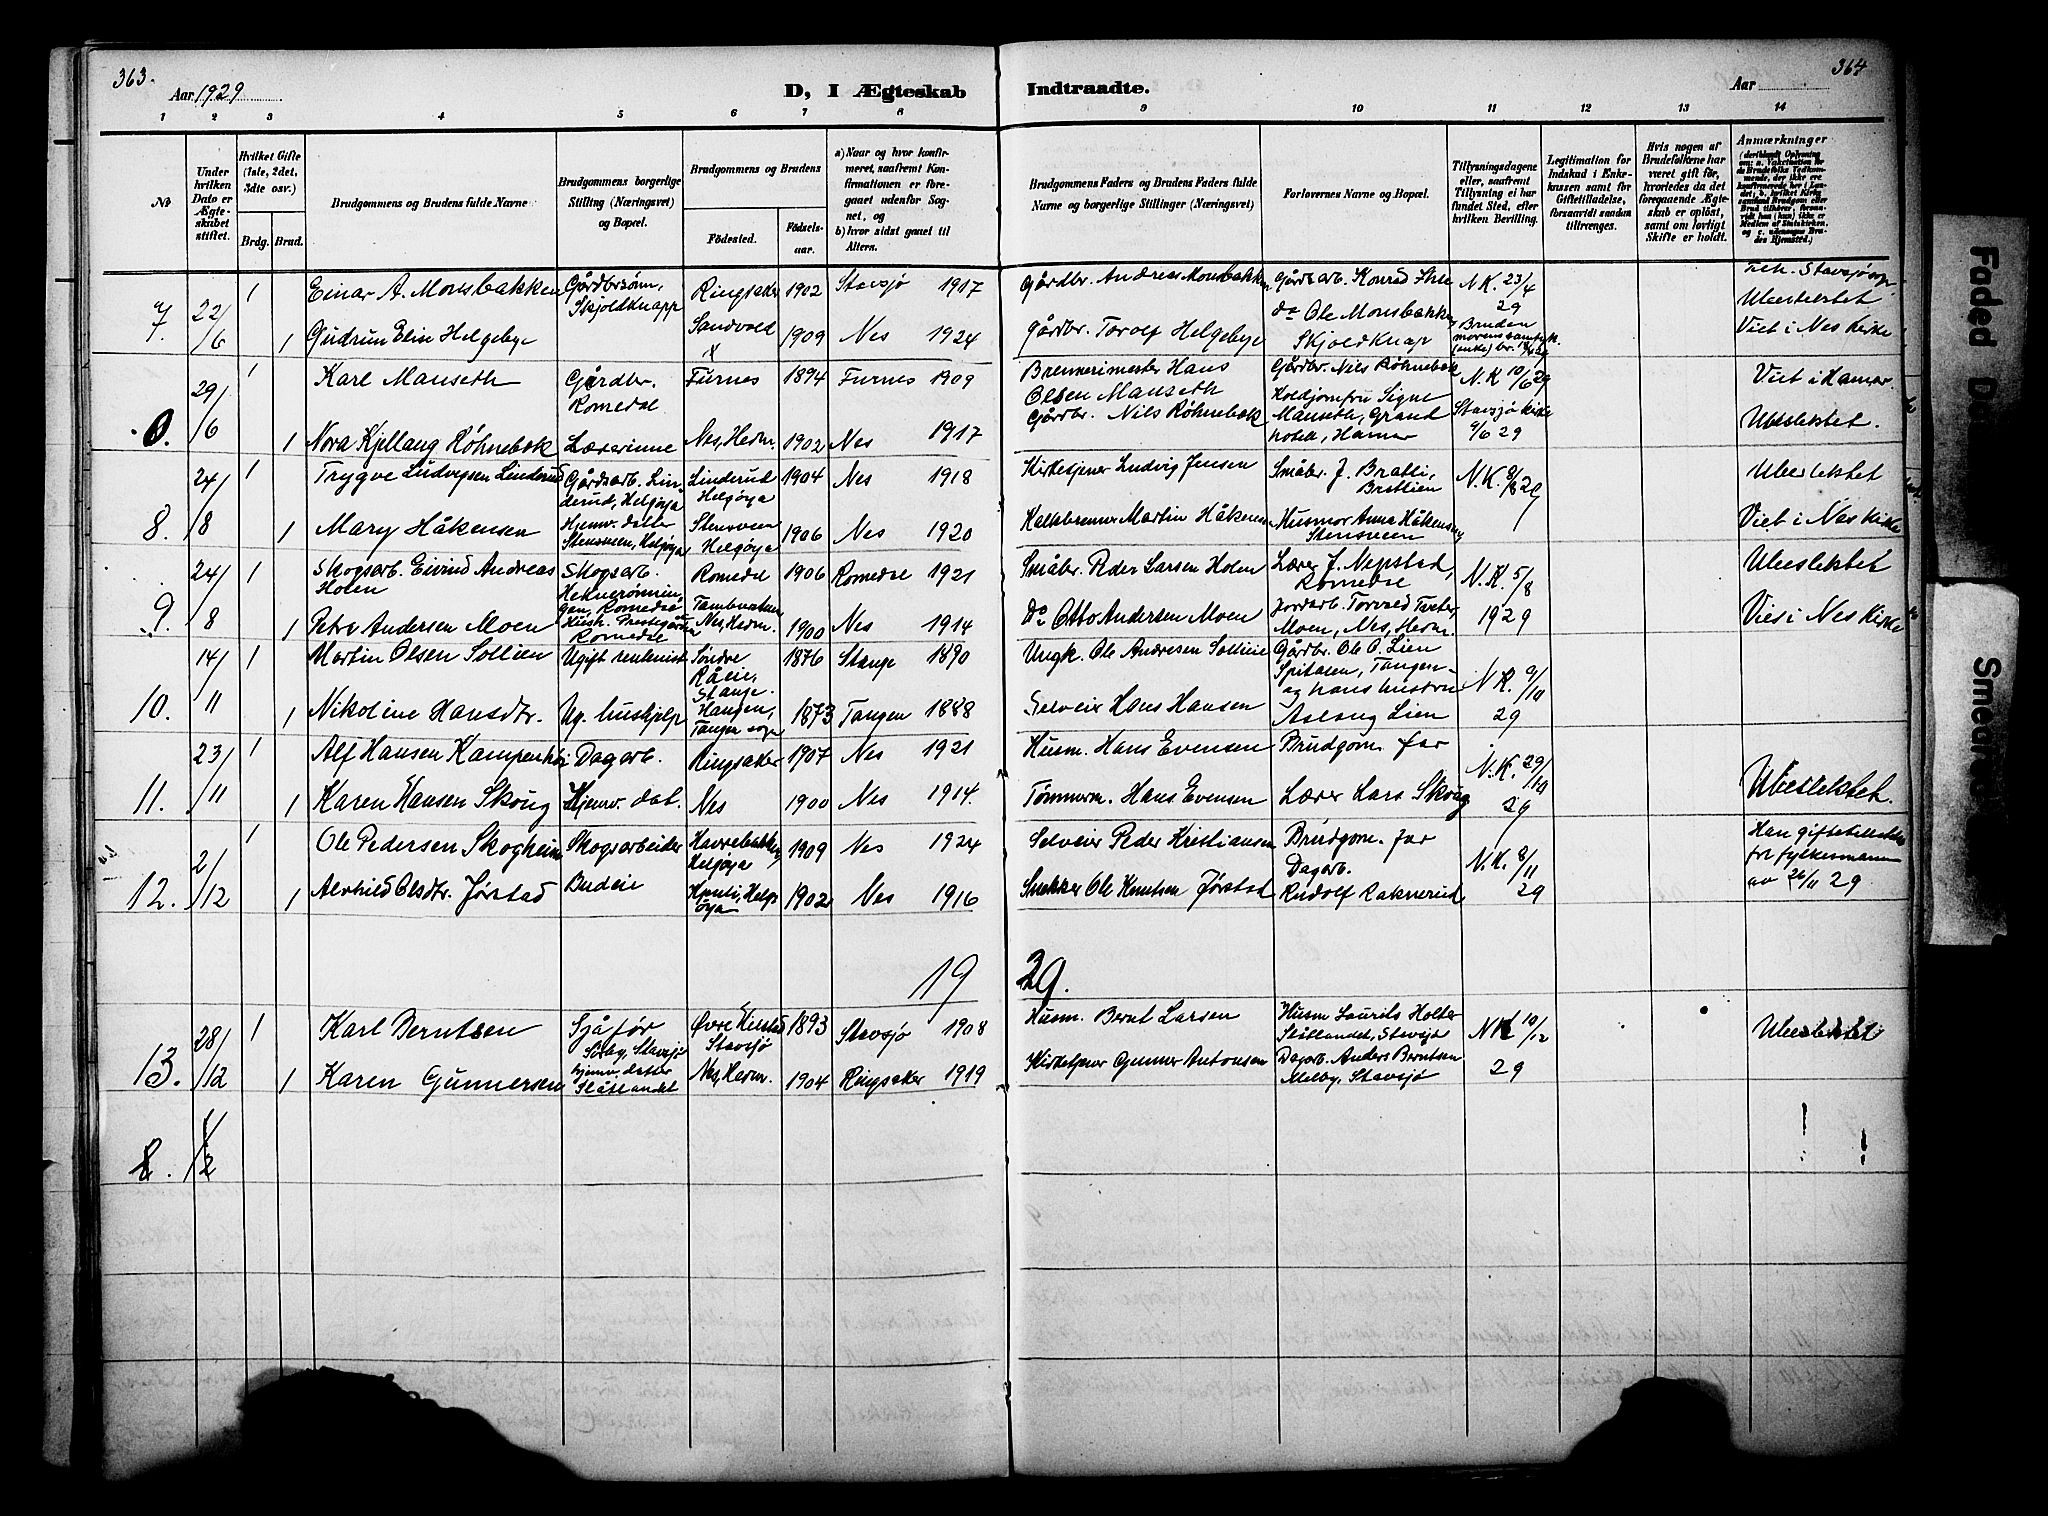 363.
Aar 1929
D, I Ægteskab
Indtraadte.
Aar
364
1 2 3 4 5 6 7 8 9 10 11 12 13 14
№
Under hvilken Dato er Ægteskabet stiftet.
Hvilket Gifte (1ste, 2det, 3die osv.)
Brdg. Brud.
Brudgommens og Brudens fulde Navne
Brudgommens borgerlige Stilling (Næringsvei) og Bopæl.
Brudgommens og Brudens
Fødested.
Fødselsaar.
a) Naar og hvor konfirmeret, saafremt Konfirmationen er foregaaet udenfor Sognet, og
b) hvor sidst gaaet til Alters.
Brudgommens Faders og Brudens Faders fulde Navne og borgerlige Stillinger (Næringsvei)
Forlovernes Navne og Bopæl.
Tillysningsdagene eller, saafremt Tillysning ei har fundet Sted, efter hvilken Bevilling.
Legitimation for Indskud i Enkekassen samt for Giftetilladelse, forsaavidt saadan tiltrænges.
Hvis nogen af Brudefolkene har været gift før, hvorledes da det foregaaende Ægteskab er opløst, samt om lovligt Skifte er holdt.
Anmærkninger
7. 22/6 1 Einar A. Monsbakken Gårdbrsønn, Skjoldknapp Ringsaker 1902 Stavsjø 1917 Gårdbr. Andreas Monsbakken Gårdsarb. Konrad N.K. 23/4 29 Stavsjø sogn Ubeslektet
1 Gudrun Elise Helgebye Sandvold 1909 Nes 1924 Gårdbr. Torolf Helgebye do Ole Monsbakken Skjoldknap Bruden morens samtyk. (enke) Viet i Nes Kirke
29/6 1 Karl Manseth Gårdbr. Romedal Furnes 1894 Furnes 1909 Brennerimester Hans Olsen Manseth Gårdbr. Nils Røhnebæk N.K 10/6 29 Viet i Hamar.
1 Nora Kjellaug Røhnebæk Lærerinne Nes, Hedm. 1902 Nes 1917 Gårdbr. Nils Røhnebæk Signe Manseth, Grand hotell, Hamar Stavsjø kirke 9/6 29 Ubeslektet.
8. 24/8 1 Trygve Ludvigsen Linderud Gårdsarb. Linderud, Helgøya Linderud Helgøya 1904 Nes 1918 Kirketjener Ludvig Jensen Småbr. J. Bratli, Brattlien N.K. 8/8 29 Ubeslektet
1 Mary Håkensen Hjemv. datter Stensveen, Helgøya Stensveen Helgøya 1906 Nes 1920 Kalkbrenner Martin Håkensen Husmor Anna Håkensen Stensveen Viet i Nes Kirke
9. 24/8 1 Skogsarb. Eivind Andreas Holen Skogsarb. Romedal Romedal 1906 Romedal 1921 Småbr. Peder Larsen Holen Lærer J. Nepstad, Romedal N.K. 5/8 1929 Ubeslektet
1 Petra Andersen Moen Hush. Prestegården Romedal Nes, Hedm. 1900 Nes 1914 Do Otto Andersen Moen Jordarb. Torvald Moen, Nes, Hedm. Viet i Nes Kirke
10. 14/11 1 Martin Olsen Sollien Ugift rentenist Søndre Råeie, Stange 1876 Stange 1890 Ungk. Ole Andresen Sollien Gårdbr. Ole O. Lien Spitalen, Tangen N.K. 9/10 29
1 Nikoline Hansdtr. Ug. hushjelp Haugen, Tangen sogn 1873 Tangen 1888 Selveier Hans Hansen og hans hustru Aslaug Lien
11. 23/11 1 Alf Hansen Kampenhøi Dagarb. Ringsaker 1907 Nes 1921 Husm. Hans Evensen Brudgom. far N.K. 29/10 29
1 Karen Hansen Skoug Hjemv. dat. Nes 1900 Nes 1914. Tømmerm. Hans Evensen Lærer Lars Skoug Ubeslektet.
12. 2/12 1 Ole Pedersen Skogheim Skogsarbeider Havrebakken Helgøya 1909 Nes 1924 Selveier Peder Kristiansen Brudgom. far N.K. 8/11 29 Han giftetilladelse fra fylkesmann av 26/11 29
1 Alvhild Olsdtr. Jørstad Budeie Helgøya 1902 Nes 1916 Snekker Ole Knutsen Jørstad Dagarb. Rudolf Raknerud
19 29.
13. 28/12 1 Karl Berntsen Sjåfør Stavsjø Øvre Stavsjø 1893 Stavsjø 1908 Husm. Bernt Larsen Husm Laurits Holter Slåtlandet, Stavsjø NK 10/12 29 Ubeslektet
1 Karen Gunnersen hjemv. datter Slåtlandet Nes, Hedm. 1904 Ringsaker 1919 Kirketjener Gunner Antonsen Dagarb. Anders Berntsen Melby, Stavsjø
Faded D
Smeared